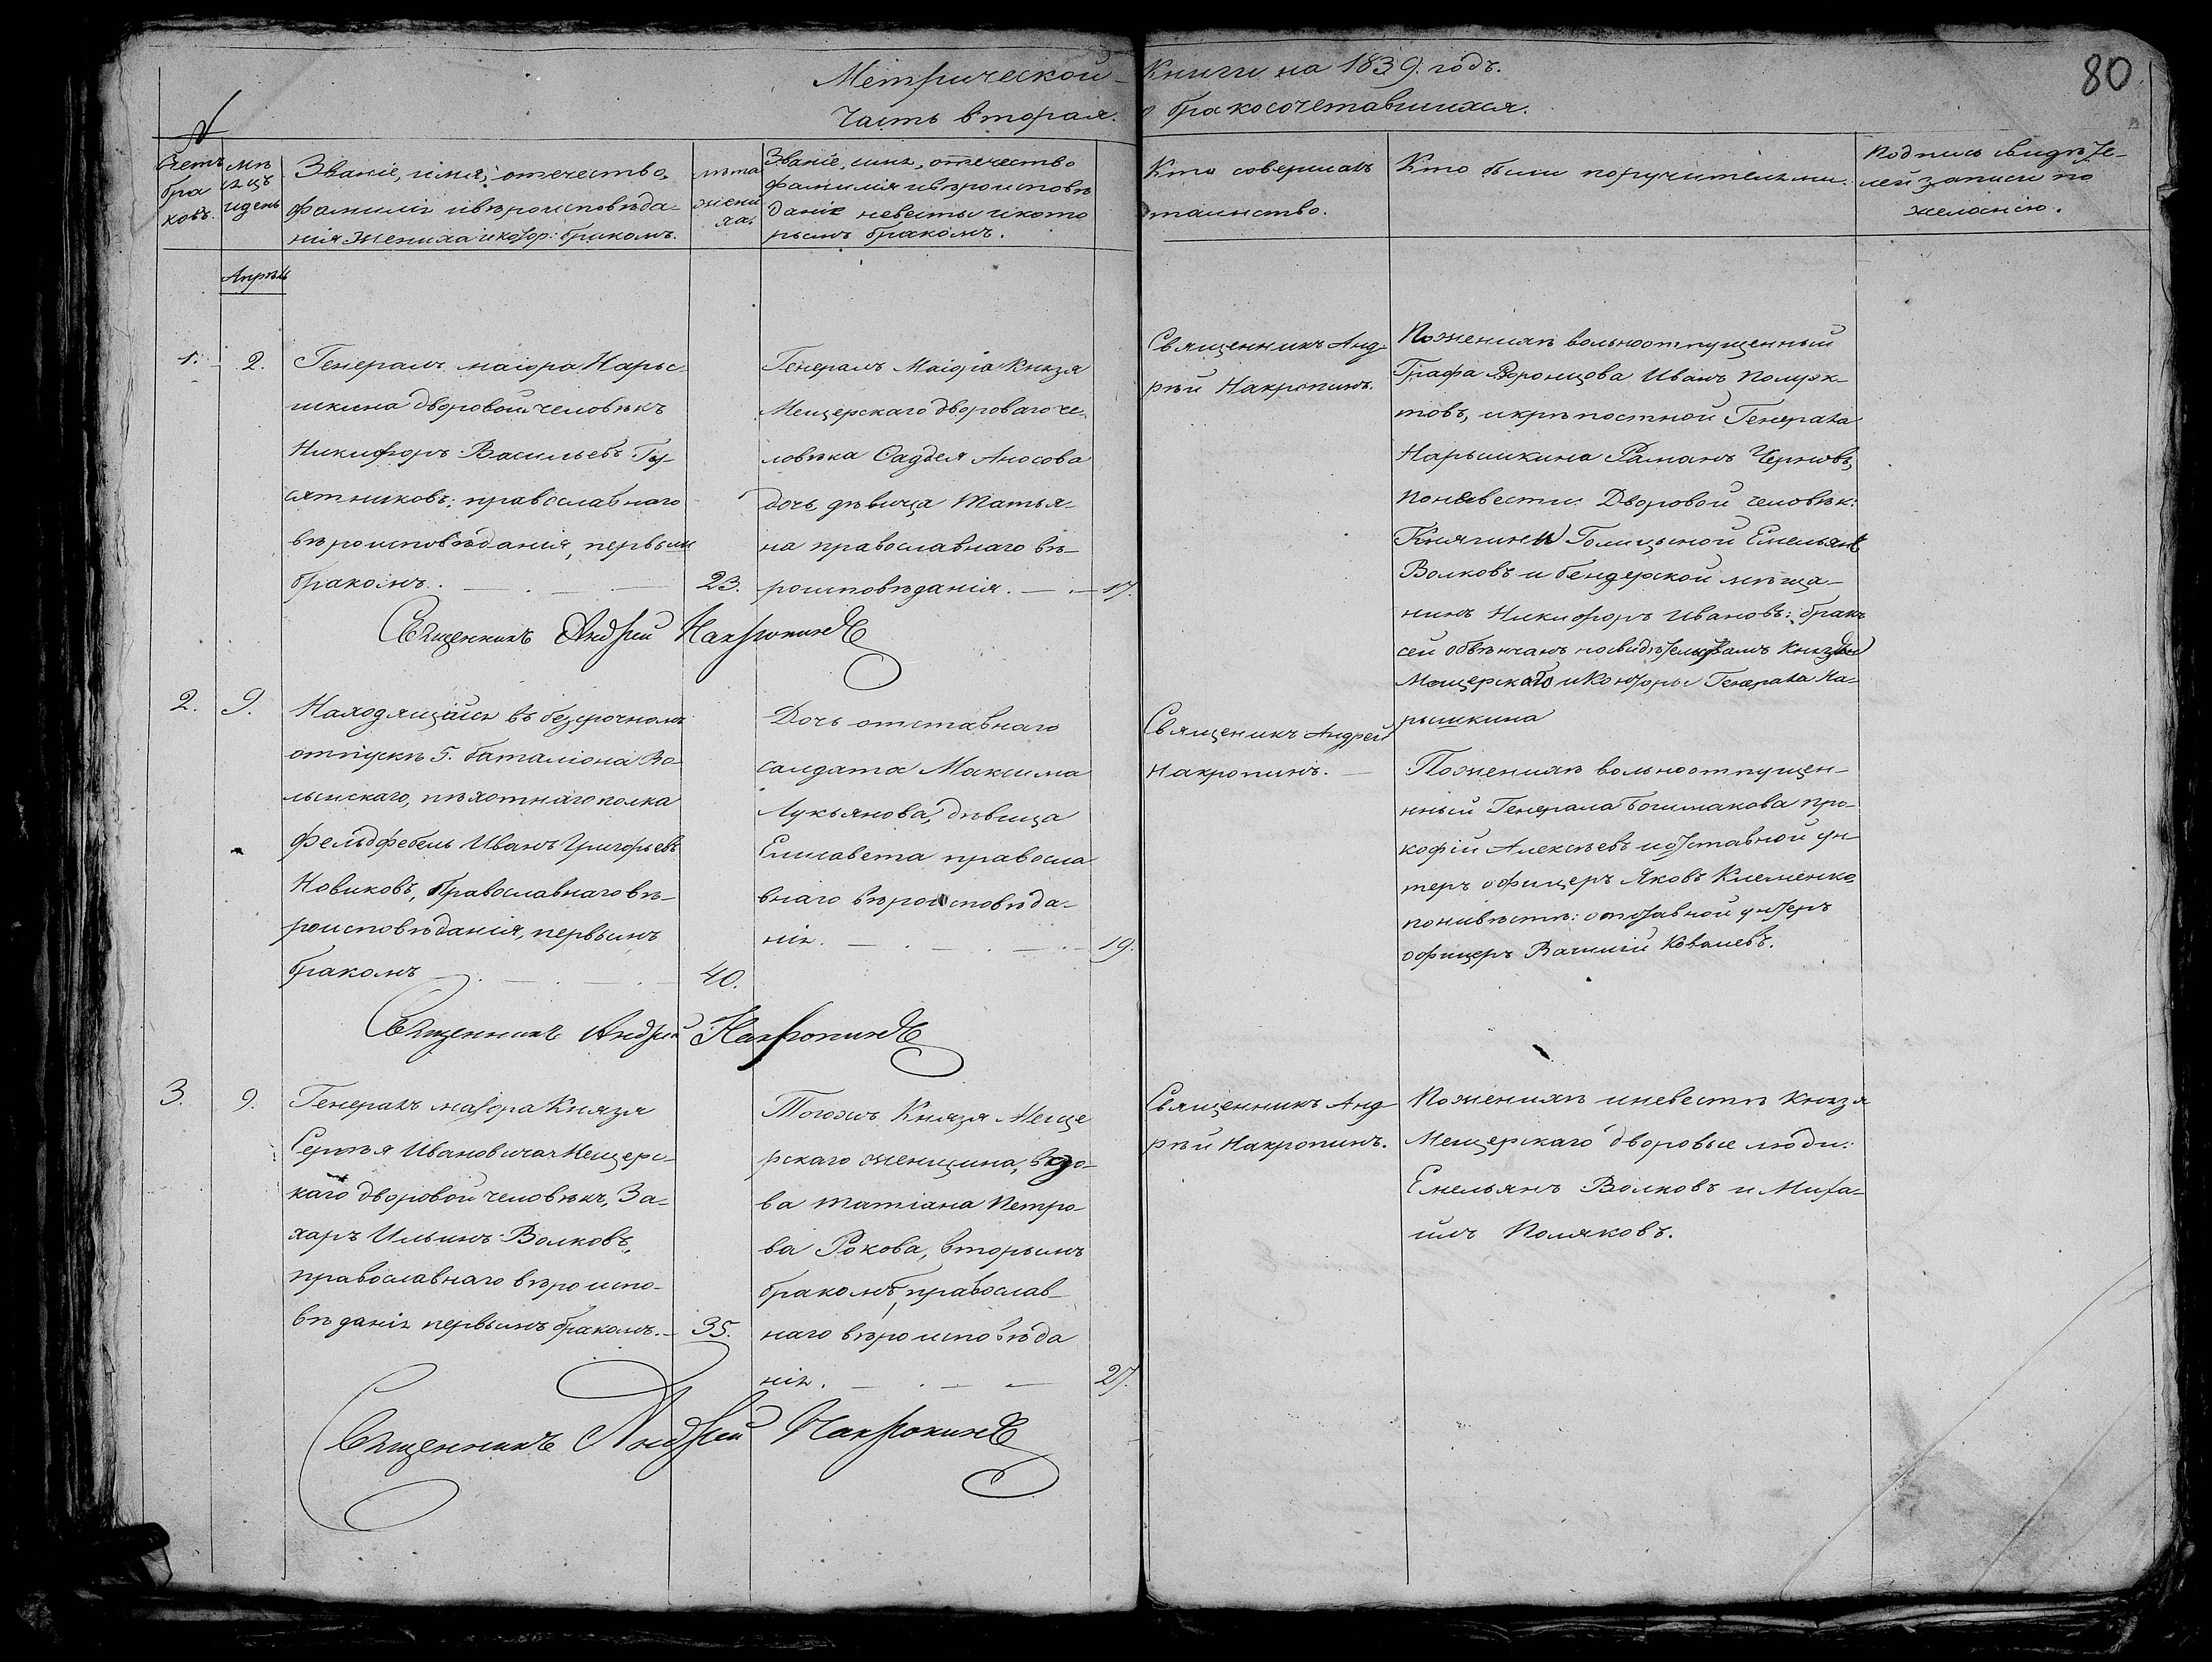 80
Метрической Книги на 1839. годъ.
Часть вторая. о бракосочетавшихся.
Счетъ
бра
ковъ.
мѣ
сяцъ
и день
Званіе, имя, отечество,
фамилія и вѣроисповѣда-
нія жениха и котор: бракомъ.
лѣта
жени
ха.
Званіе, имя, отечество
фамилія и вѣроисповѣ
даніе невесты и кото
рымъ бракомъ.
Кто совершалъ
таинство.
Кто были поручителями.
Подпись свидѣте-
лей записи по
желанію.
Апрѣль
1.
2.
Генералъ маіора Нарыс
шкина дворовой человѣкъ
Никифоръ Васильевъ Гу-
сятниковъ: православнаго
вѣроисповѣданія, первым
бракомъ.
23.
Генералъ Маіора Князя
Мещерскаго двороваго че-
ловѣка Фадѣея Аносова
дочь дѣвица Татья-
на православнаго вѣ-
роисповѣданія.
17.
Священникъ Андрей Накропинъ
Священникъ Анд-
рѣй Накропинъ.
По женихѣ вольноотпущенный
Графа Воронцова Иванъ Полуэк-
товъ, и крѣпостной Генерала
Нарышкина Раманъ Черновъ,
по невести: Дворовой человѣк:
Княгини Голицыной Емельянъ
Волковъ и бендерской мѣща-
нинъ Никифоръ Ивановъ: бракъ
сей обвѣнчанъ по свидѣтельствамъ Князя
Мещерскаго и Конторы Генерала На-
рышкина
2.
9.
Находящійся въ безсрочномъ
отпускѣ 5. баталіона Во
лынскаго, пѣхотнаго полка
фельдфебель Иванъ Григорьевъ
Новиковъ, Православнаго вѣ-
роисповѣданія, первымъ
бракомъ
40.
Дочь отставнаго
салдата Максима
Лукьянова, дѣвица
Елисавета правосла
внаго вѣроисповѣда-
нія.
19.
Священникъ Андрей Накропинъ
Священикъ Андрей
Накропинъ.
По женихѣ вольноотпущен-
нный Генерала Бошнакова Про-
кофій Алексѣевъ и отставной ун-
теръ офицеръ Яковъ Клеменко
по нивѣстѣ: отставной унтеръ
офицеръ Ковалевъ.
3.
9.
Генералъ маіора Князя
Сергѣя Ивановича Мещерс-
каго дворовой человѣкъ, За-
харъ Ильинъ Волковъ,
православнаго вѣроиспо-
вѣданія первымъ бракомъ.
35.
Тогожъ Князя Меще
рскаго женщина, вдо-
ва Татіана Петро-
ва Рокова, вторымъ
бракомъ, православ-
наго вѣроисповѣда
нія.
27.
Священникъ Андрей Накропинъ
Священникъ Анд
рѣй Накропинъ.
По женихѣ и невестѣ Князя
Мещерскаго дворовые люди:
Емельянъ Волковъ и Миха-
илъ Поляковъ.